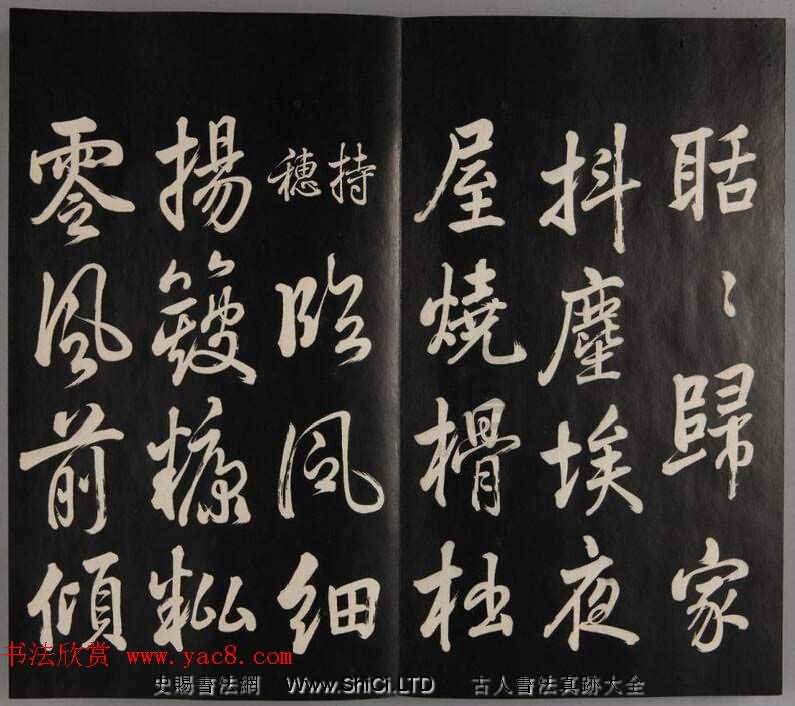 聒〻歸家
抖塵埃夜
屋燒榾柮
持穗臨風細
揚簸糠粃
零風前傾
书法欣赏 www.yac8.com
史賜書法網 Www.ShiCi.LTD 古人書法真跡大全